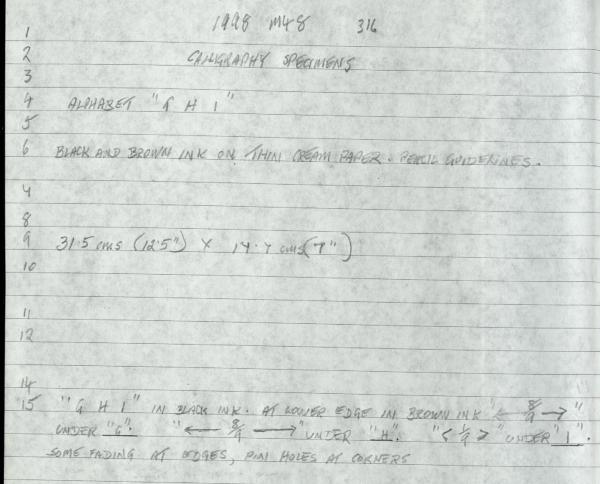 1 1998 M48 316
2 CALLIGRAPHY SPECIMENS
3
4 ALPHABET "G H I"
5
6 BLACK AND BROWN INK ON THIN CREAM PAPER. PENCIL GUIDELINES.
4
8
9 31.5 cms (12.5") X 17.7 cms (7")
10
11
12
14
15 "G H I" IN BLACK INK. AT LOWER EDGE IN BROWN INK "← 8/9 →"
UNDER "G". "← 8/9 →" UNDER "H". "< 1/9 >" UNDER "I".
SOME FADING AT EDGES, PIN HOLES AT CORNERS